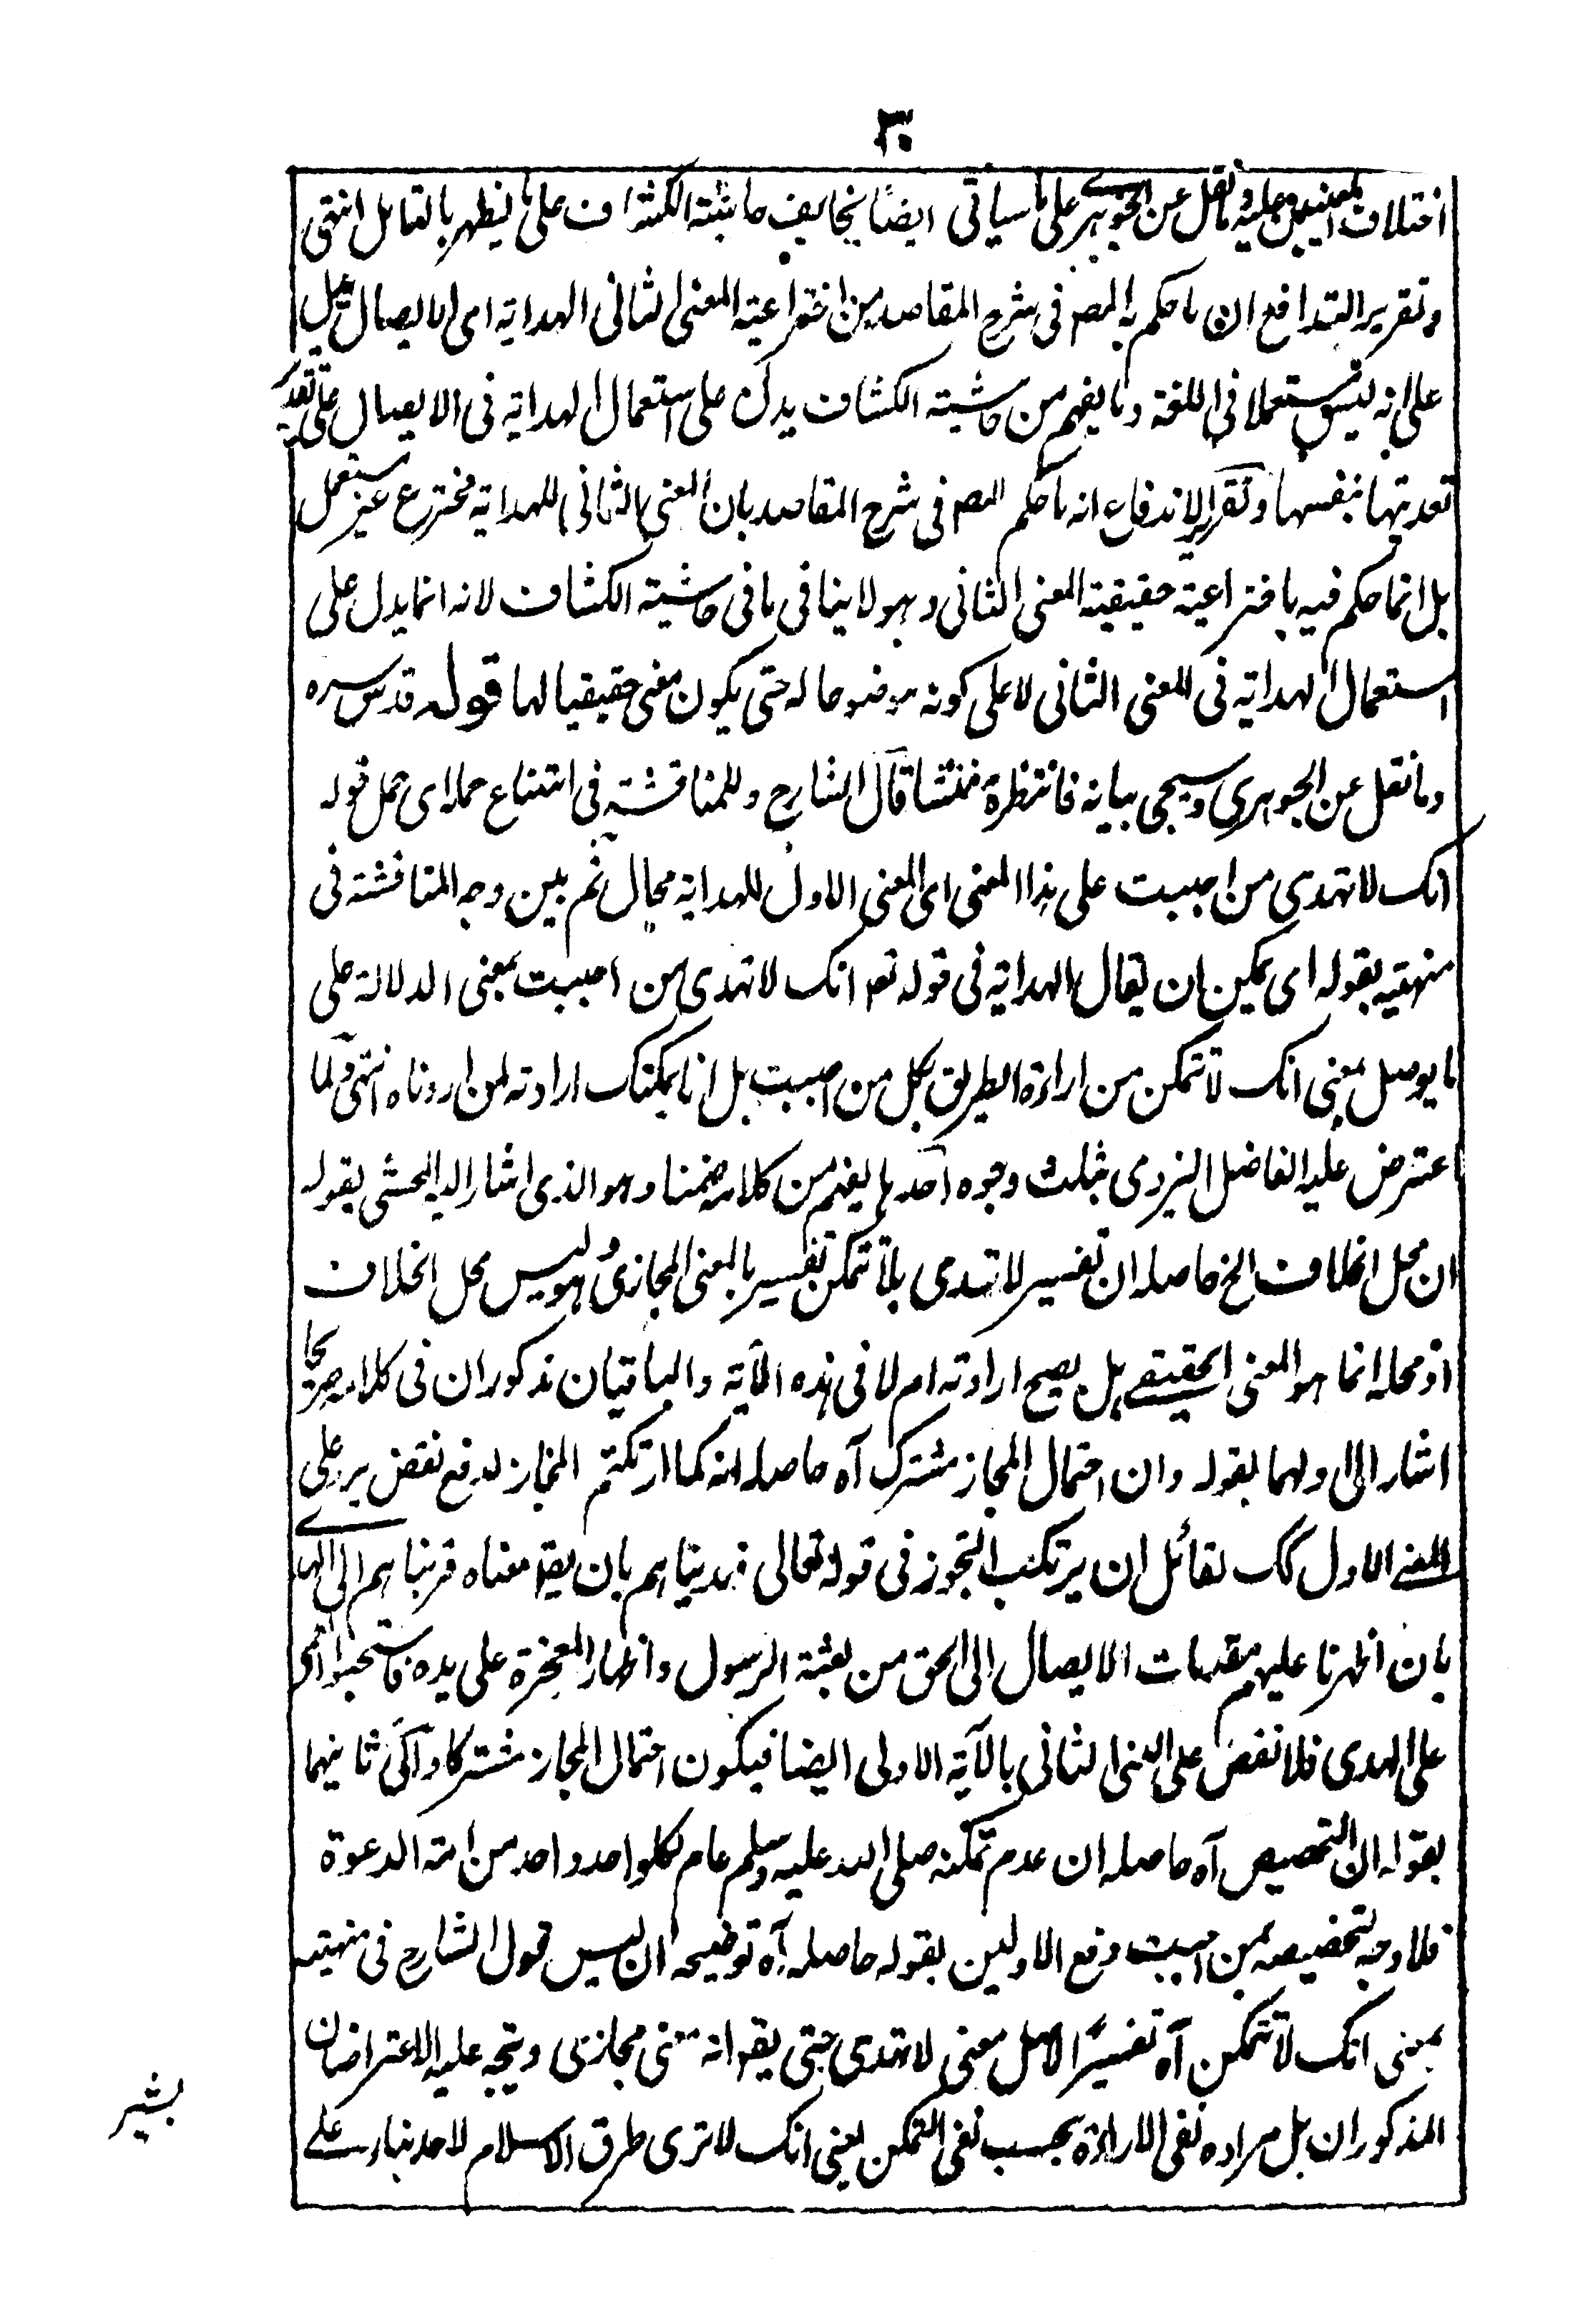 ٣٠
اختلاف المعنيين وعليه وما نقل عن الجوهري على ما سياتي ايضا يخالف حاشية الكشاف على ما يظهر بالتامل انتهى
وتقرير التدافع ان ما حكم به المص في شرح المقاصد من اختراعية المعنى الثاني الهداية اي الايصال يدل
على انه ليس مستعملا في اللغة وما يفهم من حاشية الكشاف يدل على استعمال الهداية في الايصال على تقدير
تعديتها بنفسها وتقرير الاندفاع انه ما حكم المص في شرح المقاصد بان المعنى الثاني للهداية مخترع غير مستعمل
بل انما حكم فيه باختراعية حقيقية المعنى الثاني وهو لا ينافي ما في حاشية الكشاف لانه انما يدل على
استعمال الهداية في المعنى الثاني لا على كونه موضوعا له حتى يكون معنى حقيقيا لها قوله قدس سره
وما نقل عن الجوهري وسيجي بيانه فانتظره مفتشا قال الشارح وللمناقشة في امتناع حمله اي حمل قوله
انك لا تهدي من احببت على هذا المعنى اي المعنى الاول للهداية مجال ثم بين وجه المناقشة في
منهيته بقوله اي يمكن ان يقال الهداية في قوله تع انك لا تهدي من احببت بمعنى الدلالة على
ما يوصل بمعنى انك لا تتمكن من اراءة الطريق بكل من احببت بل انما يمكنك ارادته لمن اردناه انتهى ولما
اعترض عليه الفاضل اليزدي بثلث وجوه احدها يفهم من كلامه ضمنا وهو الذي اشار اليه المحشي بقوله
ان محل الخلاف الخ حاصله ان تفسير لا تهدي بلا تتمكن تفسير بالمعنى المجازي وهو ليس محل الخلاف
اذ محله انما هو المعنى الحقيقي هل يصح ارادته ام لا في هذه الآية والباقيان مذكوران في كلامه صريحا
اشار الى اولهما بقوله وان احتمال المجاز مشترك آه حاصله انه كما ارتكبتم المجاز لدفع نقض يرد على
المعنى الاول كك لقائل ان يرتكب التجوز في قوله تعالى فهديناهم بان يقو معناه قربناهم الى الهدى
بان اظهرنا عليهم مقدمات الايصال الى الحق من بعثة الرسول واظهار المعجزة على يده فاستحبوا العمى
على الهدى فلا نقض على المعنى الثاني بالآية الاولى ايضا فيكون احتمال المجاز مشتركا والى ثانيهما
بقوله ان التخصيص آه حاصله ان عدم تمكنه صلى الله عليه وسلم عام لكلواحد واحد من امة الدعوة
فلا وجه لتخصيصه بمن احببت دفع الاولين بقوله حاصله آه توضيحه ان ليس قول الشارح في منهيته
بمعنى انك لا تتمكن آه تفسيرا لاصل معنى لا تهدي حتى يقو انه معنى مجازي ويتجه عليه الاعتراضان
المذكوران بل مراده نفي الاراءة بحسب نفي التمكن يعني انك لا ترى طرق الاسلام لاحد بناء على
بشير